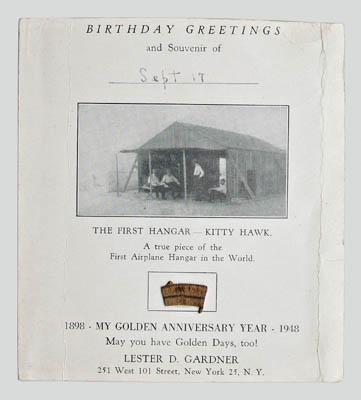 BIRTHDAY GREETINGS
and Souvenir of
Sept 17
THE FIRST HANGAR — KITTY HAWK.
A true piece of the
First Airplane Hangar in the World.
1898 - MY GOLDEN ANNIVERSARY YEAR - 1948
May you have Golden Days, too!
LESTER D. GARDNER
251 West 101 Street, New York 25, N. Y.